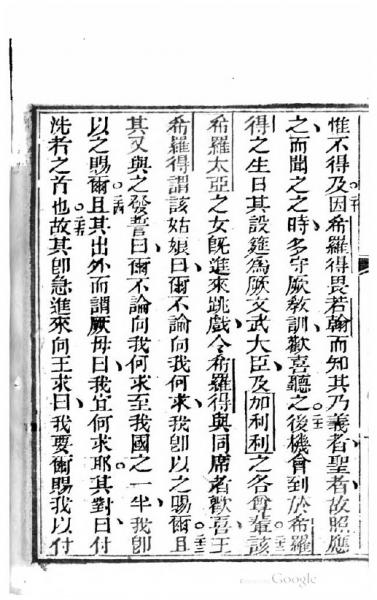 惟不得及因希羅得畏若翰而知其乃義者聖者故照應
之而聞之之時多守厥教訓歡喜聽之後機會到於希羅
得之生日其設筵為厥文武大臣及加利利之各尊輩該
希羅太亞之女既進來跳戲令希羅得與同席者歡喜王
希羅得謂該姑娘曰爾不論向我何求我卽以之賜爾且
其又與之發誓曰爾不論向我何求至我國之一半我卽
以之賜爾且其出外而謂厥母曰我宜何求耶其對曰付
洗者之首也故其卽急進來向王求曰我要爾賜我以付
Google